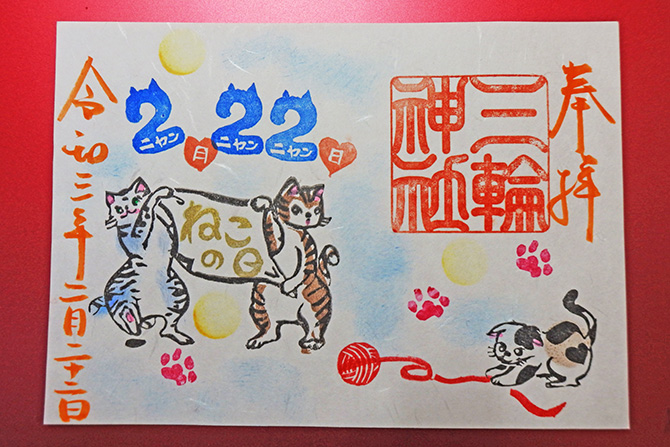 奉拝
三輪
神社
2月22日
ニャン ニャン ニャン
ねこ
の日
令和三年二月二十二日